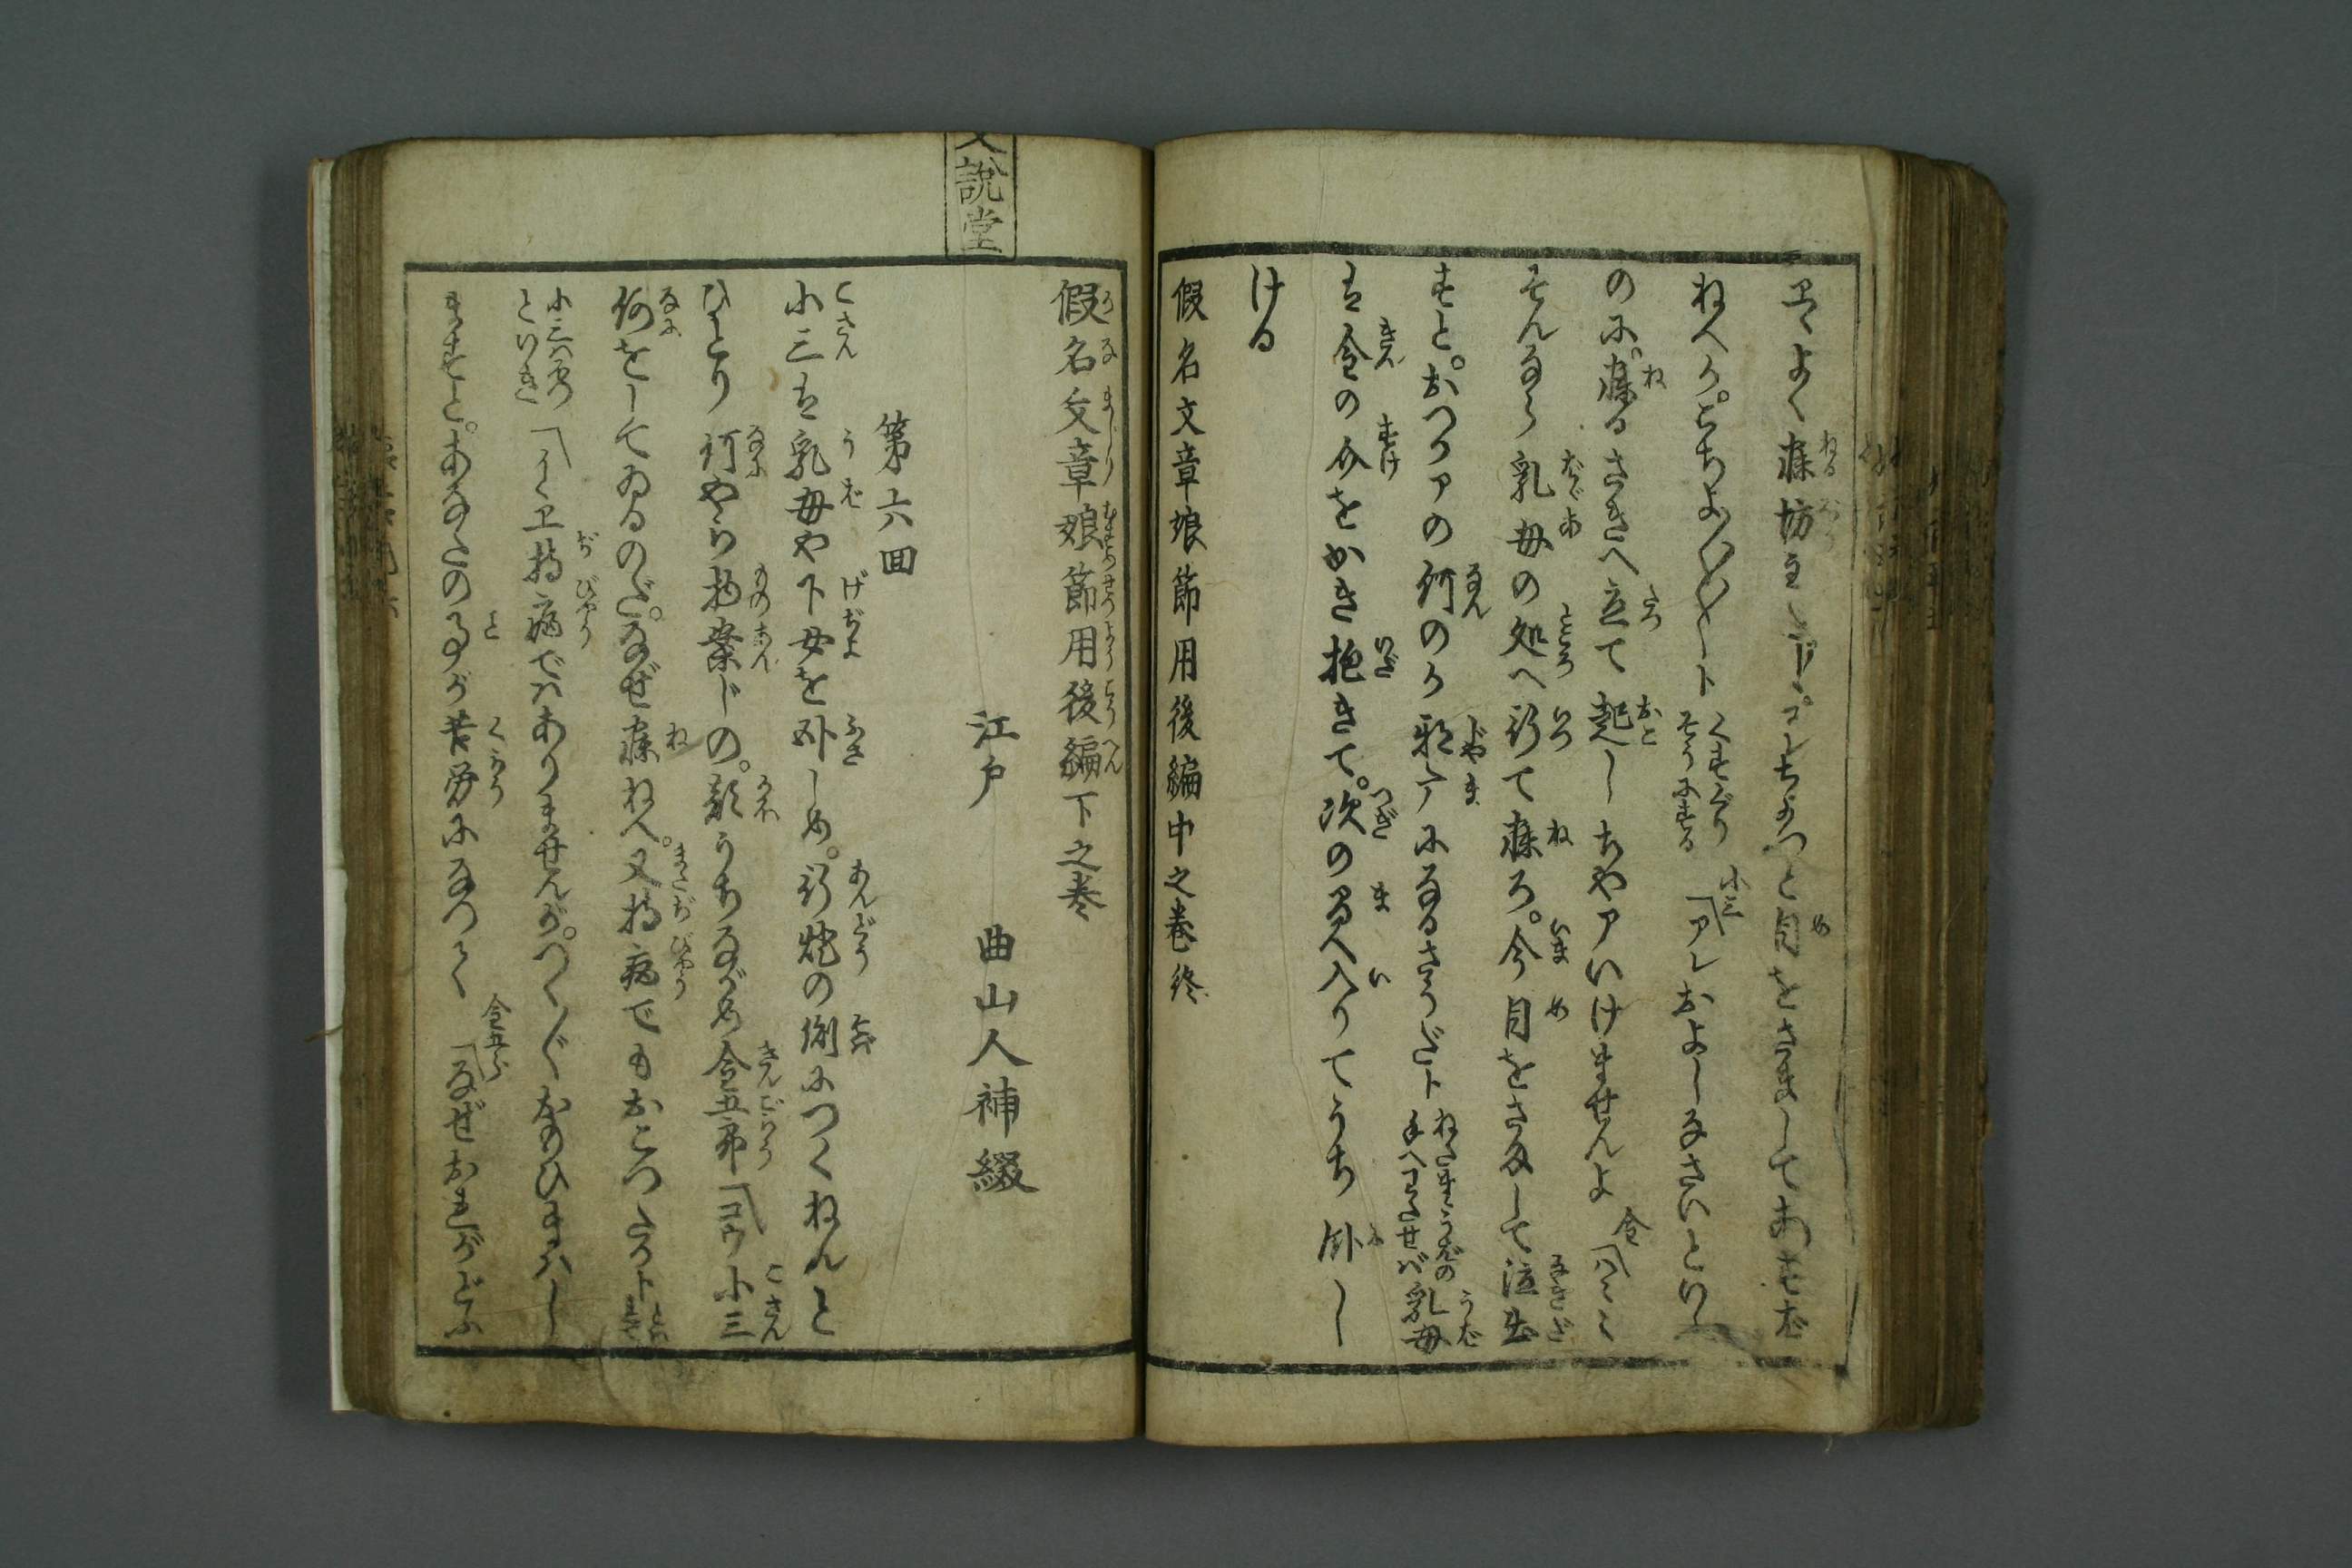 よく寐坊主ドレちよつと目をさましてあすば
ねへか。こちよ〳〵〳〵ト くすぐりそうにする 小三「アレおよしなさいといふ
のに。寐るさきへ立て起しちやアいけませんよ 金「ハヽヽ
そんなら乳母の処へ行て寐ろ。今目をさまして泣出
すと。おつかアの何のか邪广になるさうだト ねたまゝうばの手へわたせば乳母
は金の介をかき抱きて。次の間へ入りてうち臥し
ける
假名文章娘節用後編中之巻終
文説堂
假名文章娘節用後編下之巻
江戸 曲山人補綴
第六回
小三は乳母や下女を臥しめ。行燈の側につくねんと
ひとり何やら物案じの。顔うちながめ金五郎「コウ小三
何をしてゐるのだ。なぜ寐ねへ。又持病でもおこつたか
小三ハ といき「イヽヱ持病でハありませんが。つく〴〵おもひまハし
ますと。あなたの事が苦労になつて 金五郎「なぜおれがどふ